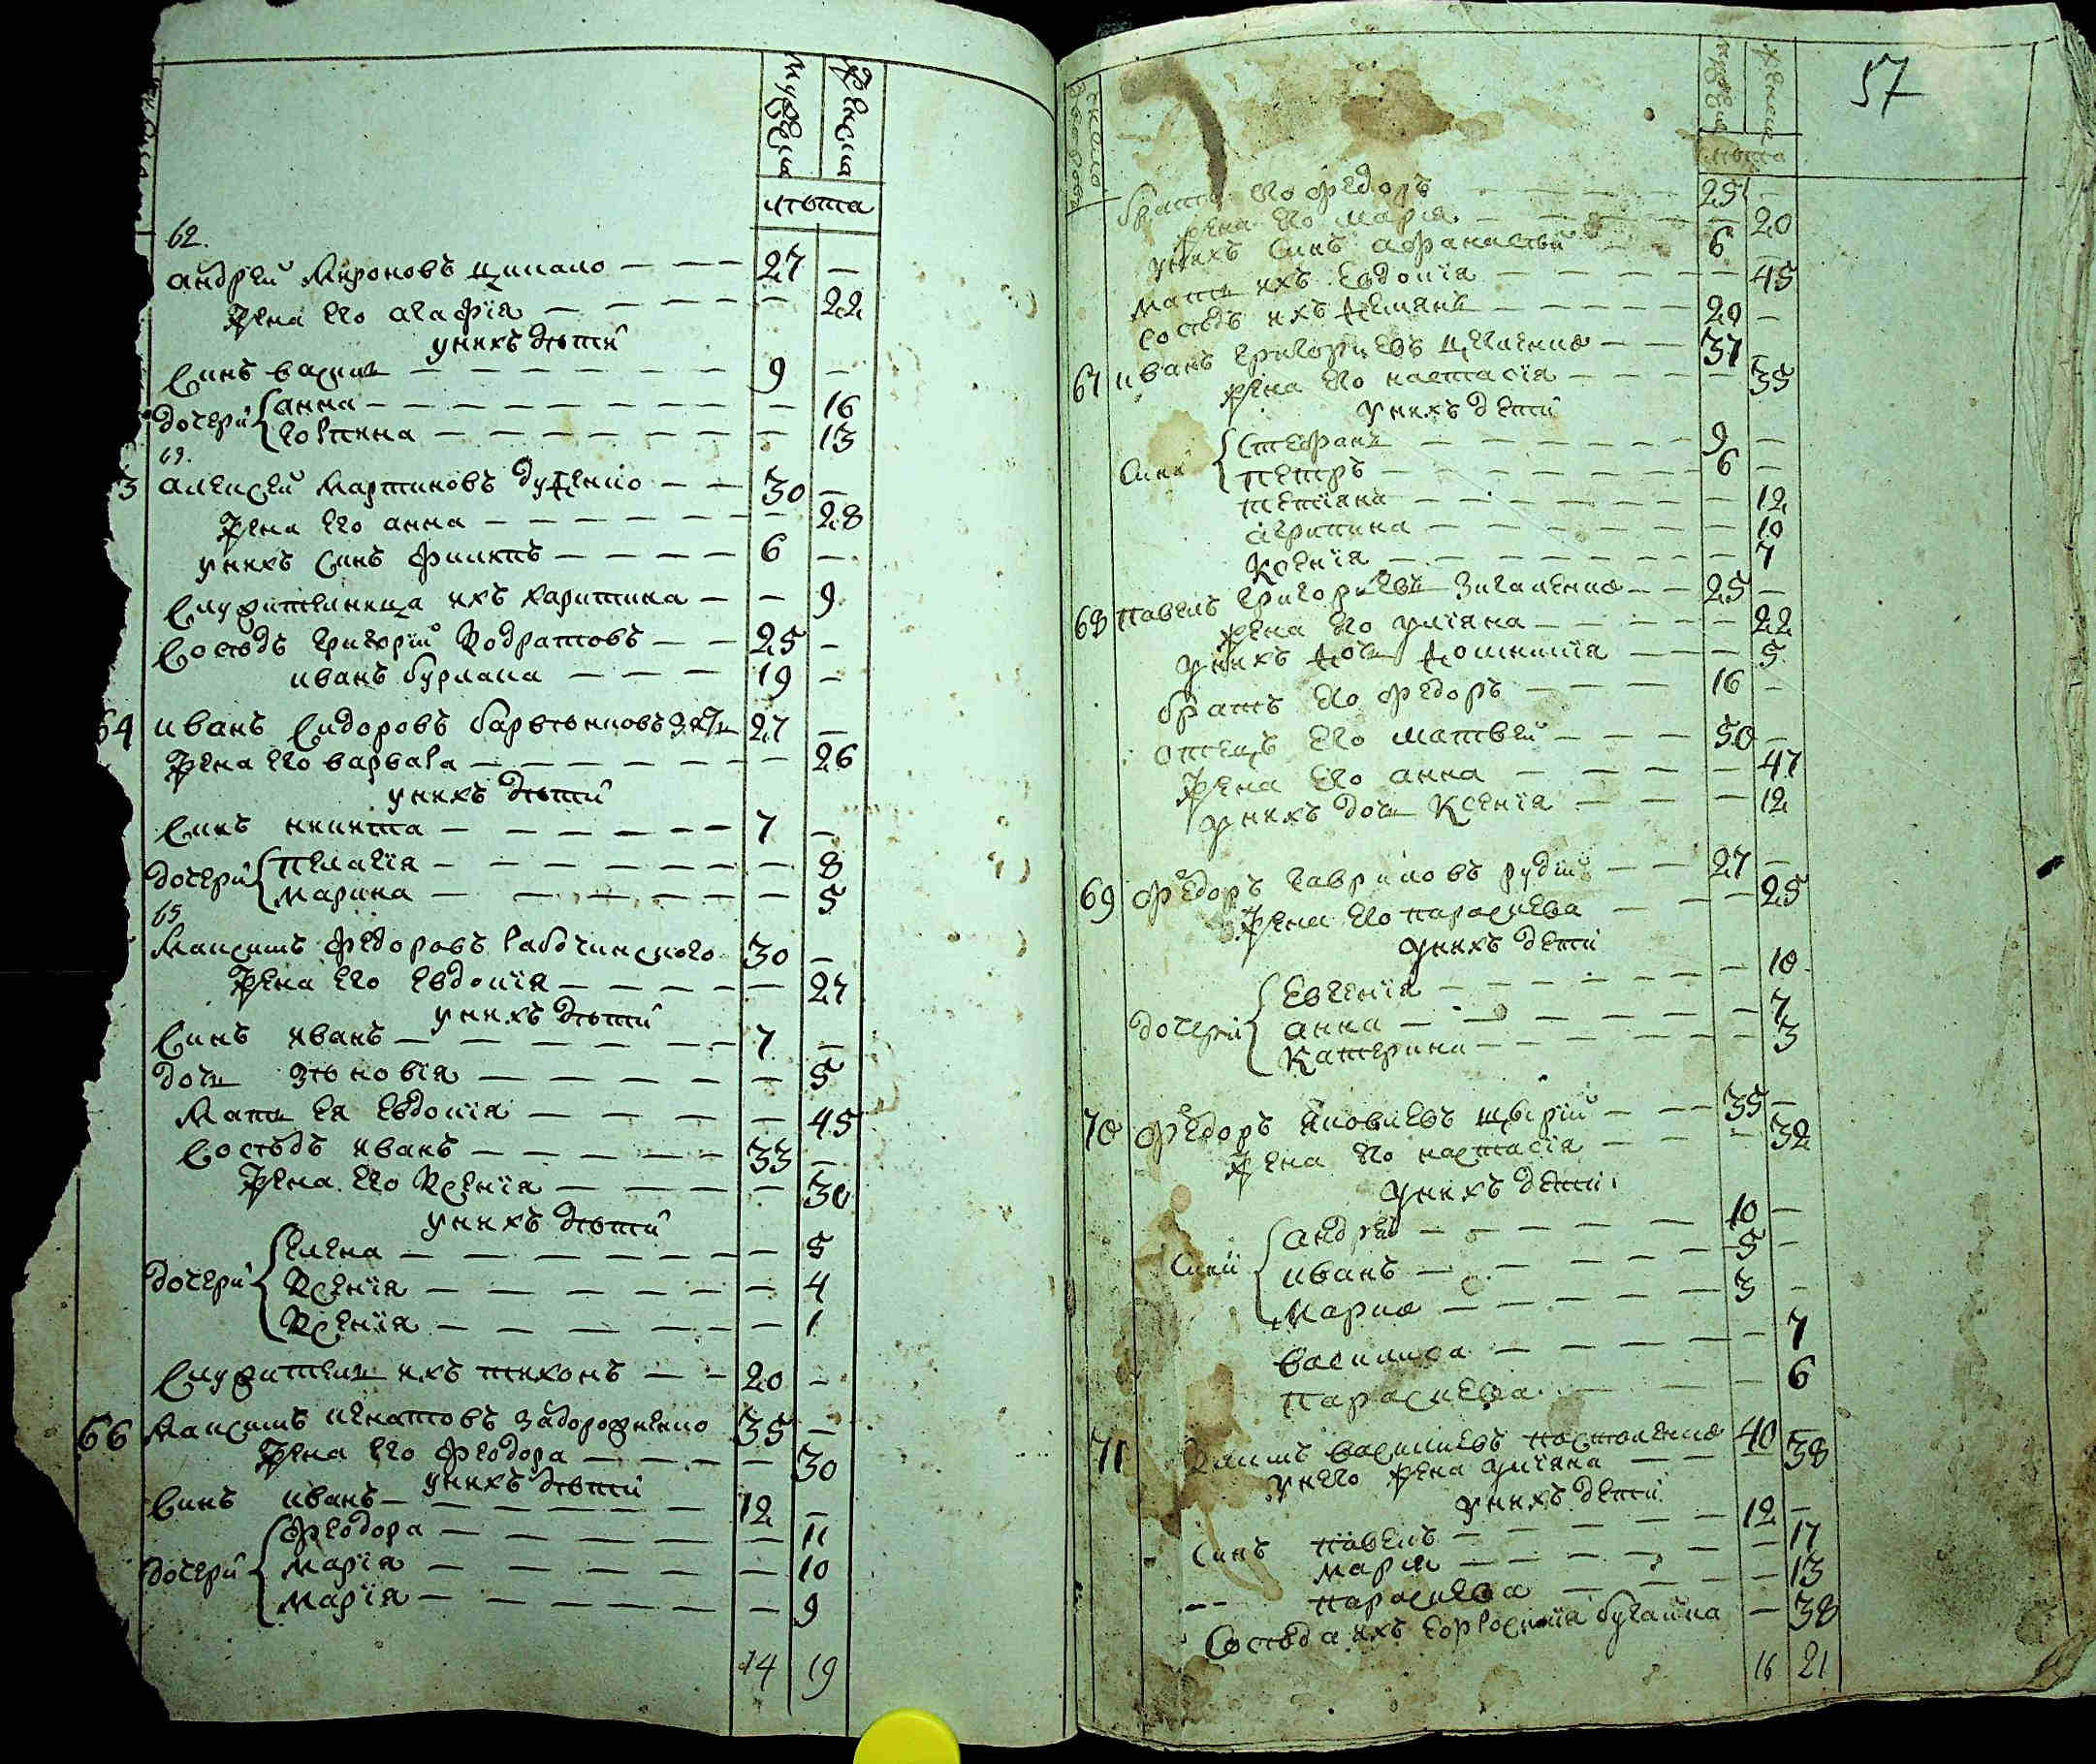 мужеска
женска
лѣта
62.
андрей Мироновъ цикало — — — 27 —
жена его агафїя — — — — — 22
унихъ дѣти
Синъ василь — — — — — — — 9 —
дочери анна — — — — — — — — 16
Горпина — — — — — — — — 13
63.
3 алексей Мартиновъ Дудченко — — 30 —
жена его анна — — — — — — — 28
унихъ синъ филипъ — — — — 6 —
Служителница ихъ харитина — — 9
Сосѣдъ григорїй Кодратовъ — — 25 —
иванъ бурлака — — — 19 —
64 иванъ Сидоровъ 27 —
жена его варвара — — — — — — — — 26
унихъ дѣти
Синъ никита — — — — — — — 7 —
дочери пелагїя — — — — — — — 8
марина — — — — — — — 5
65
Максимъ федоровъ 30 —
жена его Евдокїя — — — — — 27
унихъ дѣти
Синъ иванъ — — — — — — — 7 —
дочь зѣновїя — — — — — — 5
Мать ея Евдокїя — — — — — 45
Сосѣдъ иванъ — — — — — — 33 —
жена его Ксенїя — — — — — 30
унихъ дѣти
дочери Елена — — — — — — — — 5
Ксенїя — — — — — — — 4
Ксенїя — — — — — — — 1
Служитель ихъ тихонъ — — 20 —
66 Максимъ игнатовъ задорожненко 35 —
жена его феодора — — — — — 30
унихъ дѣти
Синъ иванъ — — — — — — — 12 —
дочери феодора — — — — — — — 11
марїя — — — — — — — 10
марїя — — — — — — — 9
14 19
57
число
дворовъ
мужеска
женска
лѣта
братъ его федоръ — — — — 25 —
жена его марїя — — — — — 20
унихъ синъ афанасїй — — 6 —
мать ихъ Евдокїя — — — — — 45
сосѣдъ ихъ демянъ — — — — — 20 —
67 иванъ григориевъ — — 37 —
жена его настасїя — — — — — 35
унихъ дети
сини стефанъ — — — — — — — 9 —
петръ — — — — — — — 6 —
тетїяна — — — — — — — 12
агрипина — — — — — — — 10
Ксенїя — — — — — — — 7
68 павелъ григориевъ — — 25 —
жена его улїяна — — — — — 22
унихъ дочь домникїя — — — 5
братъ его федоръ — — — 16 —
отецъ его матвей — — — 50 —
жена его анна — — — — 47
унихъ дочь Ксенїя — — — 12
69 федоръ гавриловъ рудий — — 27 —
жена его параскева — — — 25
унихъ дети
дочерий Евгенїя — — — — — — — 10
анна — — — — — — — 7
Катерина — — — — — — — 3
70 федоръ яковлевъ — — — 35 —
жена его настасїя — — — 32
унихъ дети
сини андрей — — — — — 10 —
иванъ — — — — — — 5 —
марко — — — — — — 3 —
василиса — — — — — 7
параскева — — — — 6
71 Климъ василиевъ 40 —
унего жена улїяна — — — 38
унихъ дети
синъ павелъ — — — — — — 12 —
марїя — — — — — — — 17
-- параскева — — — — — 13
Сосѣда ихъ — 38
16 21